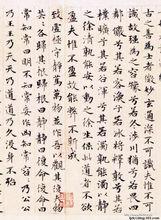 古之善為士者微妙玄通深不可識夫惟不可
識故強為之容豫兮若冬涉川猶兮若畏四
鄰儼兮其若客渙兮若冰將釋敦兮其若
樸曠兮其若谷渾兮其若濁孰能濁以靜
之徐清孰能安以久動之徐生保此道者不欲
盈夫惟不盈故能敝不新成
致虛極守靜篤萬物並作吾以觀其復夫物
芸芸各歸其根歸根曰靜靜曰復命復命曰
常知常曰明不知常妄作凶知常容容乃公公
乃王王乃天天乃道道乃久沒身不殆